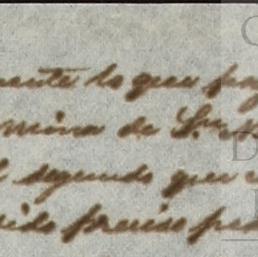 mente lo que pa
mina de Sn
l segundo que
sido preciso pa